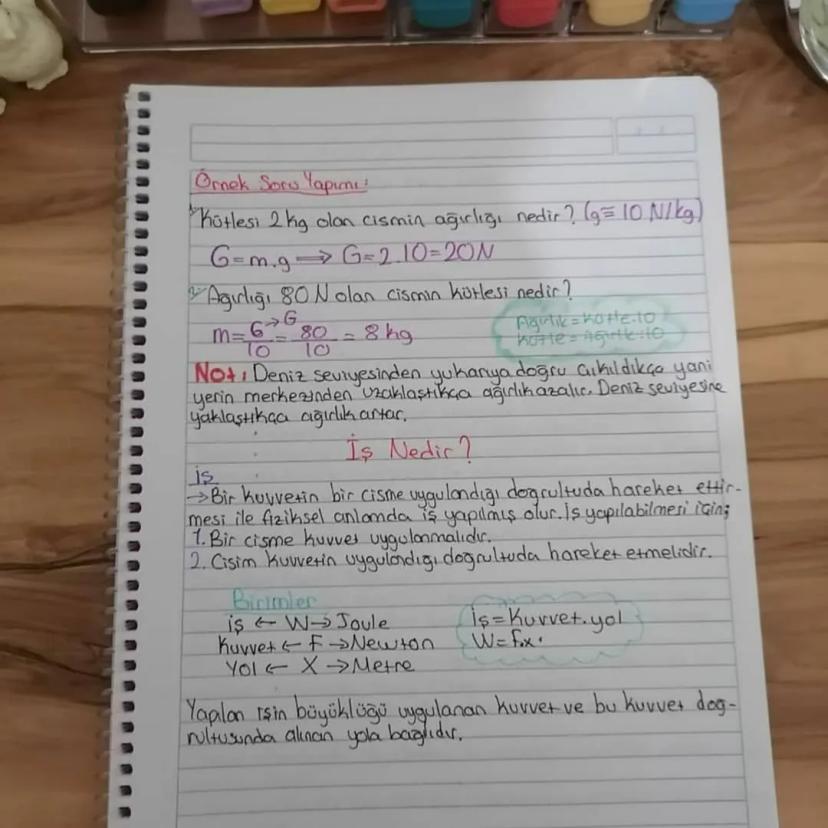 Örnek Soru Yapımı:
1- Kütlesi 2 kg olan cismin ağırlığı nedir? (g=10 N/kg)
G=m.g ⟹ G=2.10=20N
2- Ağırlığı 80 N olan cismin kütlesi nedir?
m=G→G/10=80/10=8kg
Ağırlık=Kütle.10
Kütle=Ağırlık:10
Not: Deniz seviyesinden yukarıya doğru çıkıldıkça yani
yerin merkezinden uzaklaştıkça ağırlık azalır. Deniz seviyesine
yaklaştıkça ağırlık artar.
İş Nedir?
İş
→Bir kuvvetin bir cisme uygulandığı doğrultuda hareket ettir-
mesi ile fiziksel anlamda iş yapılmış olur. İş yapılabilmesi için;
1. Bir cisme kuvvet uygulanmalıdır.
2. Cisim kuvvetin uygulandığı doğrultuda hareket etmelidir.
Birimler
iş ← W→ Joule
Kuvvet ← F →Newton
Yol ← X →Metre
İş=Kuvvet.yol
W=f.x
Yapılan işin büyüklüğü uygulanan kuvvet ve bu kuvvet doğ-
rultusunda alınan yola bağlıdır.